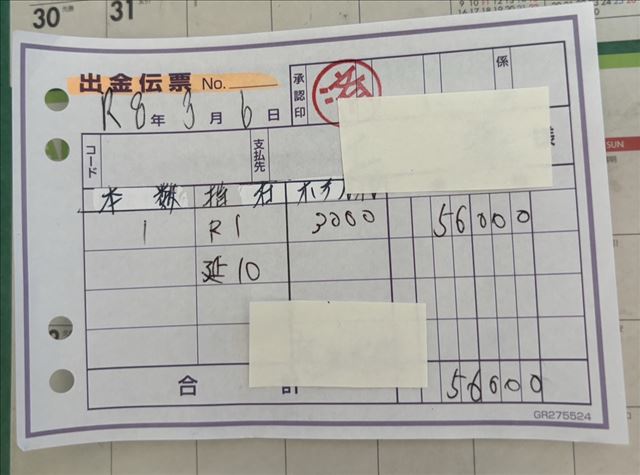 30 31
出金伝票 No.
承認印 済 係
R8年3月6日
コード 支払先 様
本数 指名
1 R1 3000 56000
延10
合計 56000
GR275524
SUN